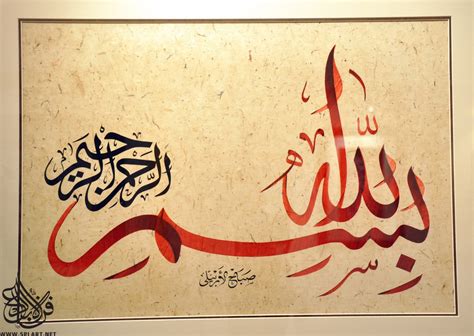 بسم الله
الرحمن الرحيم
صباح الأربيلي
WWW.SRIART.NET